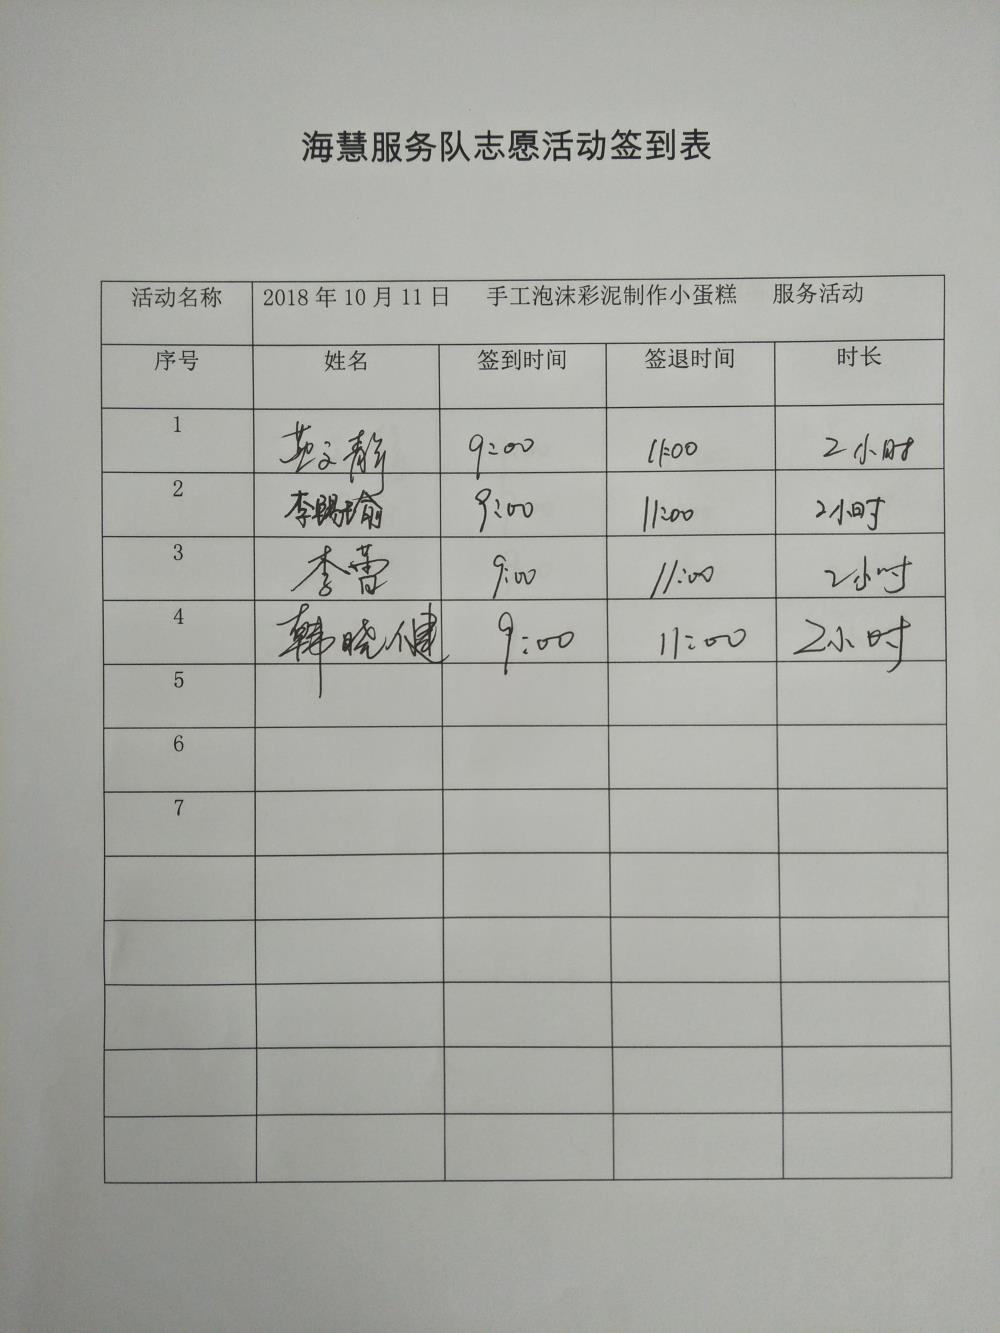 海慧服务队志愿活动签到表
活动名称 2018年10月11日 手工泡沫彩泥制作小蛋糕 服务活动
序号 姓名 签到时间 签退时间 时长
1 文静 9:00 11:00 2小时
2 李赐瑜 9:00 11:00 2小时
3 李蕾 9:00 11:00 2小时
4 韩晓健 9:00 11:00 2小时
5
6
7